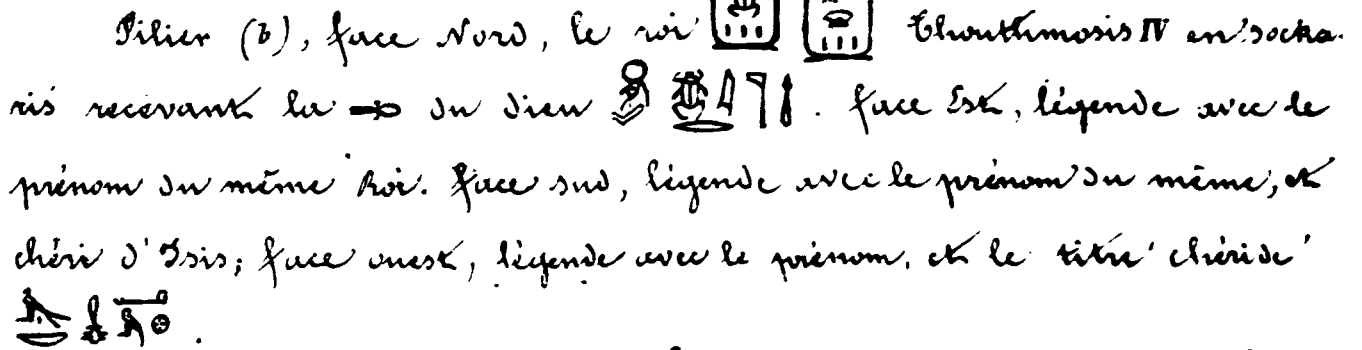 Pilier (b), face Nord, le roi Thouthmosis IV en Socka-
ris recevant la du dieu . face Est, légende avec le
prénom du même Roi. face sud, légende avec le prénom du même, et
chéri d'Isis; face ouest, légende avec le prénom, et le titre 'chéri de'
.